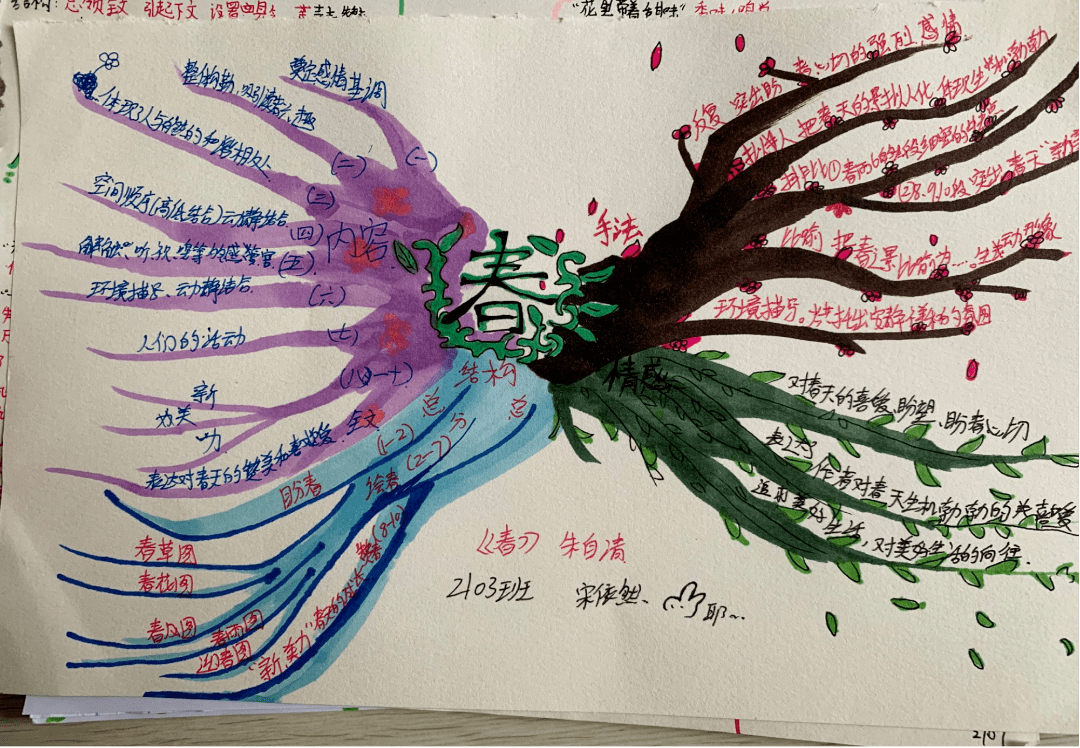 结构：总领全文 引起下文 设置悬念
"花里带着甜味"
奠定感情基调
(一)
整体勾勒，吸引读者兴趣
(二)
体现了人与自然的和谐相处
(三)
空间顺序(高低结合)动静结合
(四)
内容
解放、听、视、嗅等的感觉官
(五)
环境描写、动静结合
(六)
人们的活动
(七)
新
美
力
(八一十)
表达对春天的赞美和喜爱
全文
春
手法
反复 突出盼春心切的强烈感情
拟人 把春天的景拟人化，体现生机勃勃
排比①春雨6的片段细密的特点
②8.9.10段突出春天
比喻 把春景比喻为……。生动形象
环境描写。烘托出安静谧和的氛围
结构
总
(1-2)
盼春
分
(2-7)
绘春
总
(8-10)
赞春
春草图
春花图
春风图
春雨图
迎春图
"新，美，力"春天的成长
情感
对春天的喜爱、盼望、盼春心切
表达了
作者对春天生机勃勃的赞美喜爱
追求美好
生活，对美好生活的向往.
《春》 朱自清
2103班 宋依然、 耶~